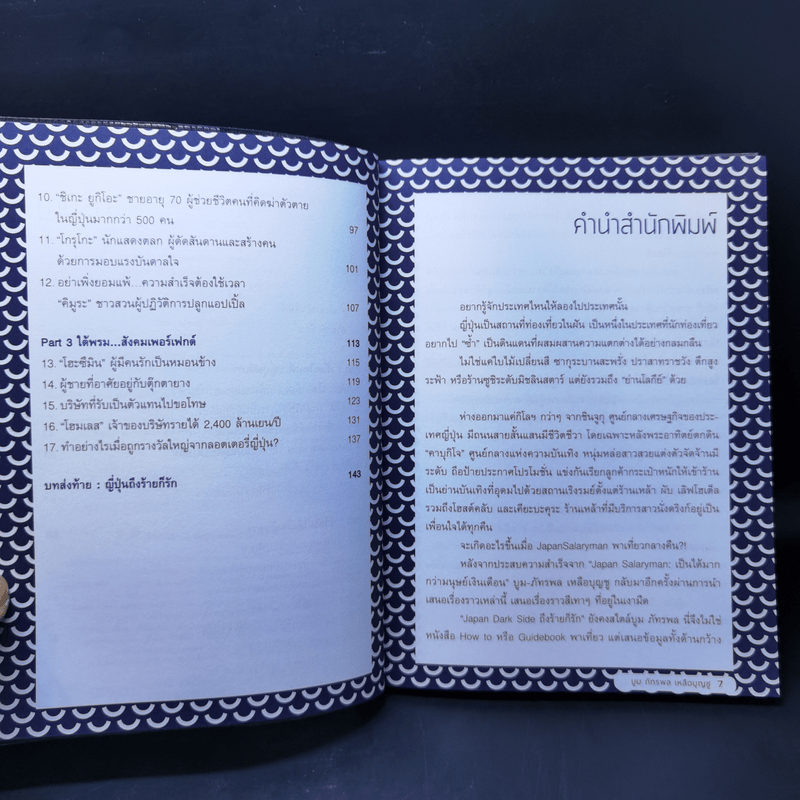 10. "ชิเกะ ยูกิโอะ" ชายอายุ 70 ผู้ช่วยชีวิตคนที่คิดฆ่าตัวตาย
ในญี่ปุ่นมากกว่า 500 คน 97
11. "โกรุโกะ" นักแสดงตลก ผู้ดัดสันดานและสร้างคน
ด้วยการมอบแรงบันดาลใจ 101
12. อย่าเพิ่งยอมแพ้...ความสำเร็จต้องใช้เวลา
"คิมูระ" ชาวสวนผู้ปฏิวัติการปลูกแอปเปิ้ล 107
Part 3 ใต้พรม...สังคมเพอร์เฟกต์ 113
13. "โฮะซึมิน" ผู้มีคนรักเป็นหมอนข้าง 115
14. ผู้ชายที่อาศัยอยู่กับตุ๊กตายาง 119
15. บริษัทที่รับเป็นตัวแทนไปขอโทษ 123
16. "โฮมเลส" เจ้าของบริษัทรายได้ 2,400 ล้านเยน/ปี 131
17. ทำอย่างไรเมื่อถูกรางวัลใหญ่จากลอตเตอรี่ญี่ปุ่น? 137
บทส่งท้าย : ญี่ปุ่นถึงร้ายก็รัก 143
คำนำสำนักพิมพ์
อยากรู้จักประเทศไหนให้ลองไปประเทศนั้น
ญี่ปุ่นเป็นสถานที่ท่องเที่ยวในฝัน เป็นหนึ่งในประเทศที่นักท่องเที่ยว
อยากไป "ซ้ำ" เป็นดินแดนที่ผสมผสานความแตกต่างได้อย่างกลมกลืน
ไม่ใช่แค่ใบไม้เปลี่ยนสี ซากุระบานสะพรั่ง ปราสาทราชวัง ตึกสูง
ระฟ้า หรือร้านซูชิระดับมิชลินสตาร์ แต่ยังรวมถึง "ย่านโลกีย์" ด้วย
ห่างออกมาแค่กิโลฯ กว่าๆ จากชินจูกุ ศูนย์กลางเศรษฐกิจของประ-
เทศญี่ปุ่น มีถนนสายสั้นแสนมีชีวิตชีวา โดยเฉพาะหลังพระอาทิตย์ตกดิน
"คาบุกิโจ" ศูนย์กลางแห่งความบันเทิง หนุ่มหล่อสาวสวยแต่งตัวจัดจ้านมี
ระดับ ถือป้ายประกาศโปรโมชั่น แข่งกันเรียกลูกค้ากระเป๋าหนักให้เข้าร้าน
เป็นย่านบันเทิงที่อุดมไปด้วยสถานเริงรมย์ตั้งแต่ร้านเหล้า ผับ เลิฟโฮเต็ล
รวมถึงโฮสต์คลับ และเคียะบะคุระ ร้านเหล้าที่มีบริการสาวนั่งดริงก์อยู่เป็น
เพื่อนใจได้ทุกคืน
จะเกิดอะไรขึ้นเมื่อ JapanSalaryman พาเที่ยวกลางคืน?!
หลังจากประสบความสำเร็จจาก "Japan Salaryman: เป็นได้มาก
กว่ามนุษย์เงินเดือน" บูม-ภัทรพล เหลือบุญชู กลับมาอีกครั้งผ่านการนำ
เสนอเรื่องราวเหล่านี้ เสนอเรื่องราวสีเทาๆ ที่อยู่ในเงามืด
"Japan Dark Side ถึงร้ายก็รัก" ยังคงสไตล์บูม ภัทรพล นี่จึงไม่ใช่
หนังสือ How to หรือ Guidebook พาเที่ยว แต่เสนอข้อมูลทั้งด้านกว้าง
บูม ภัทรพล เหลือบุญชู 7